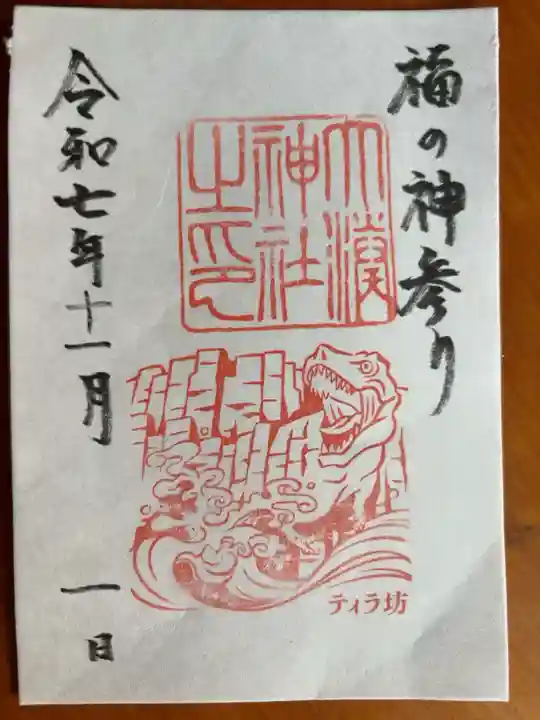 福の神参り
大湊
神社
之印
令和七年十一月 一日
ティラ坊